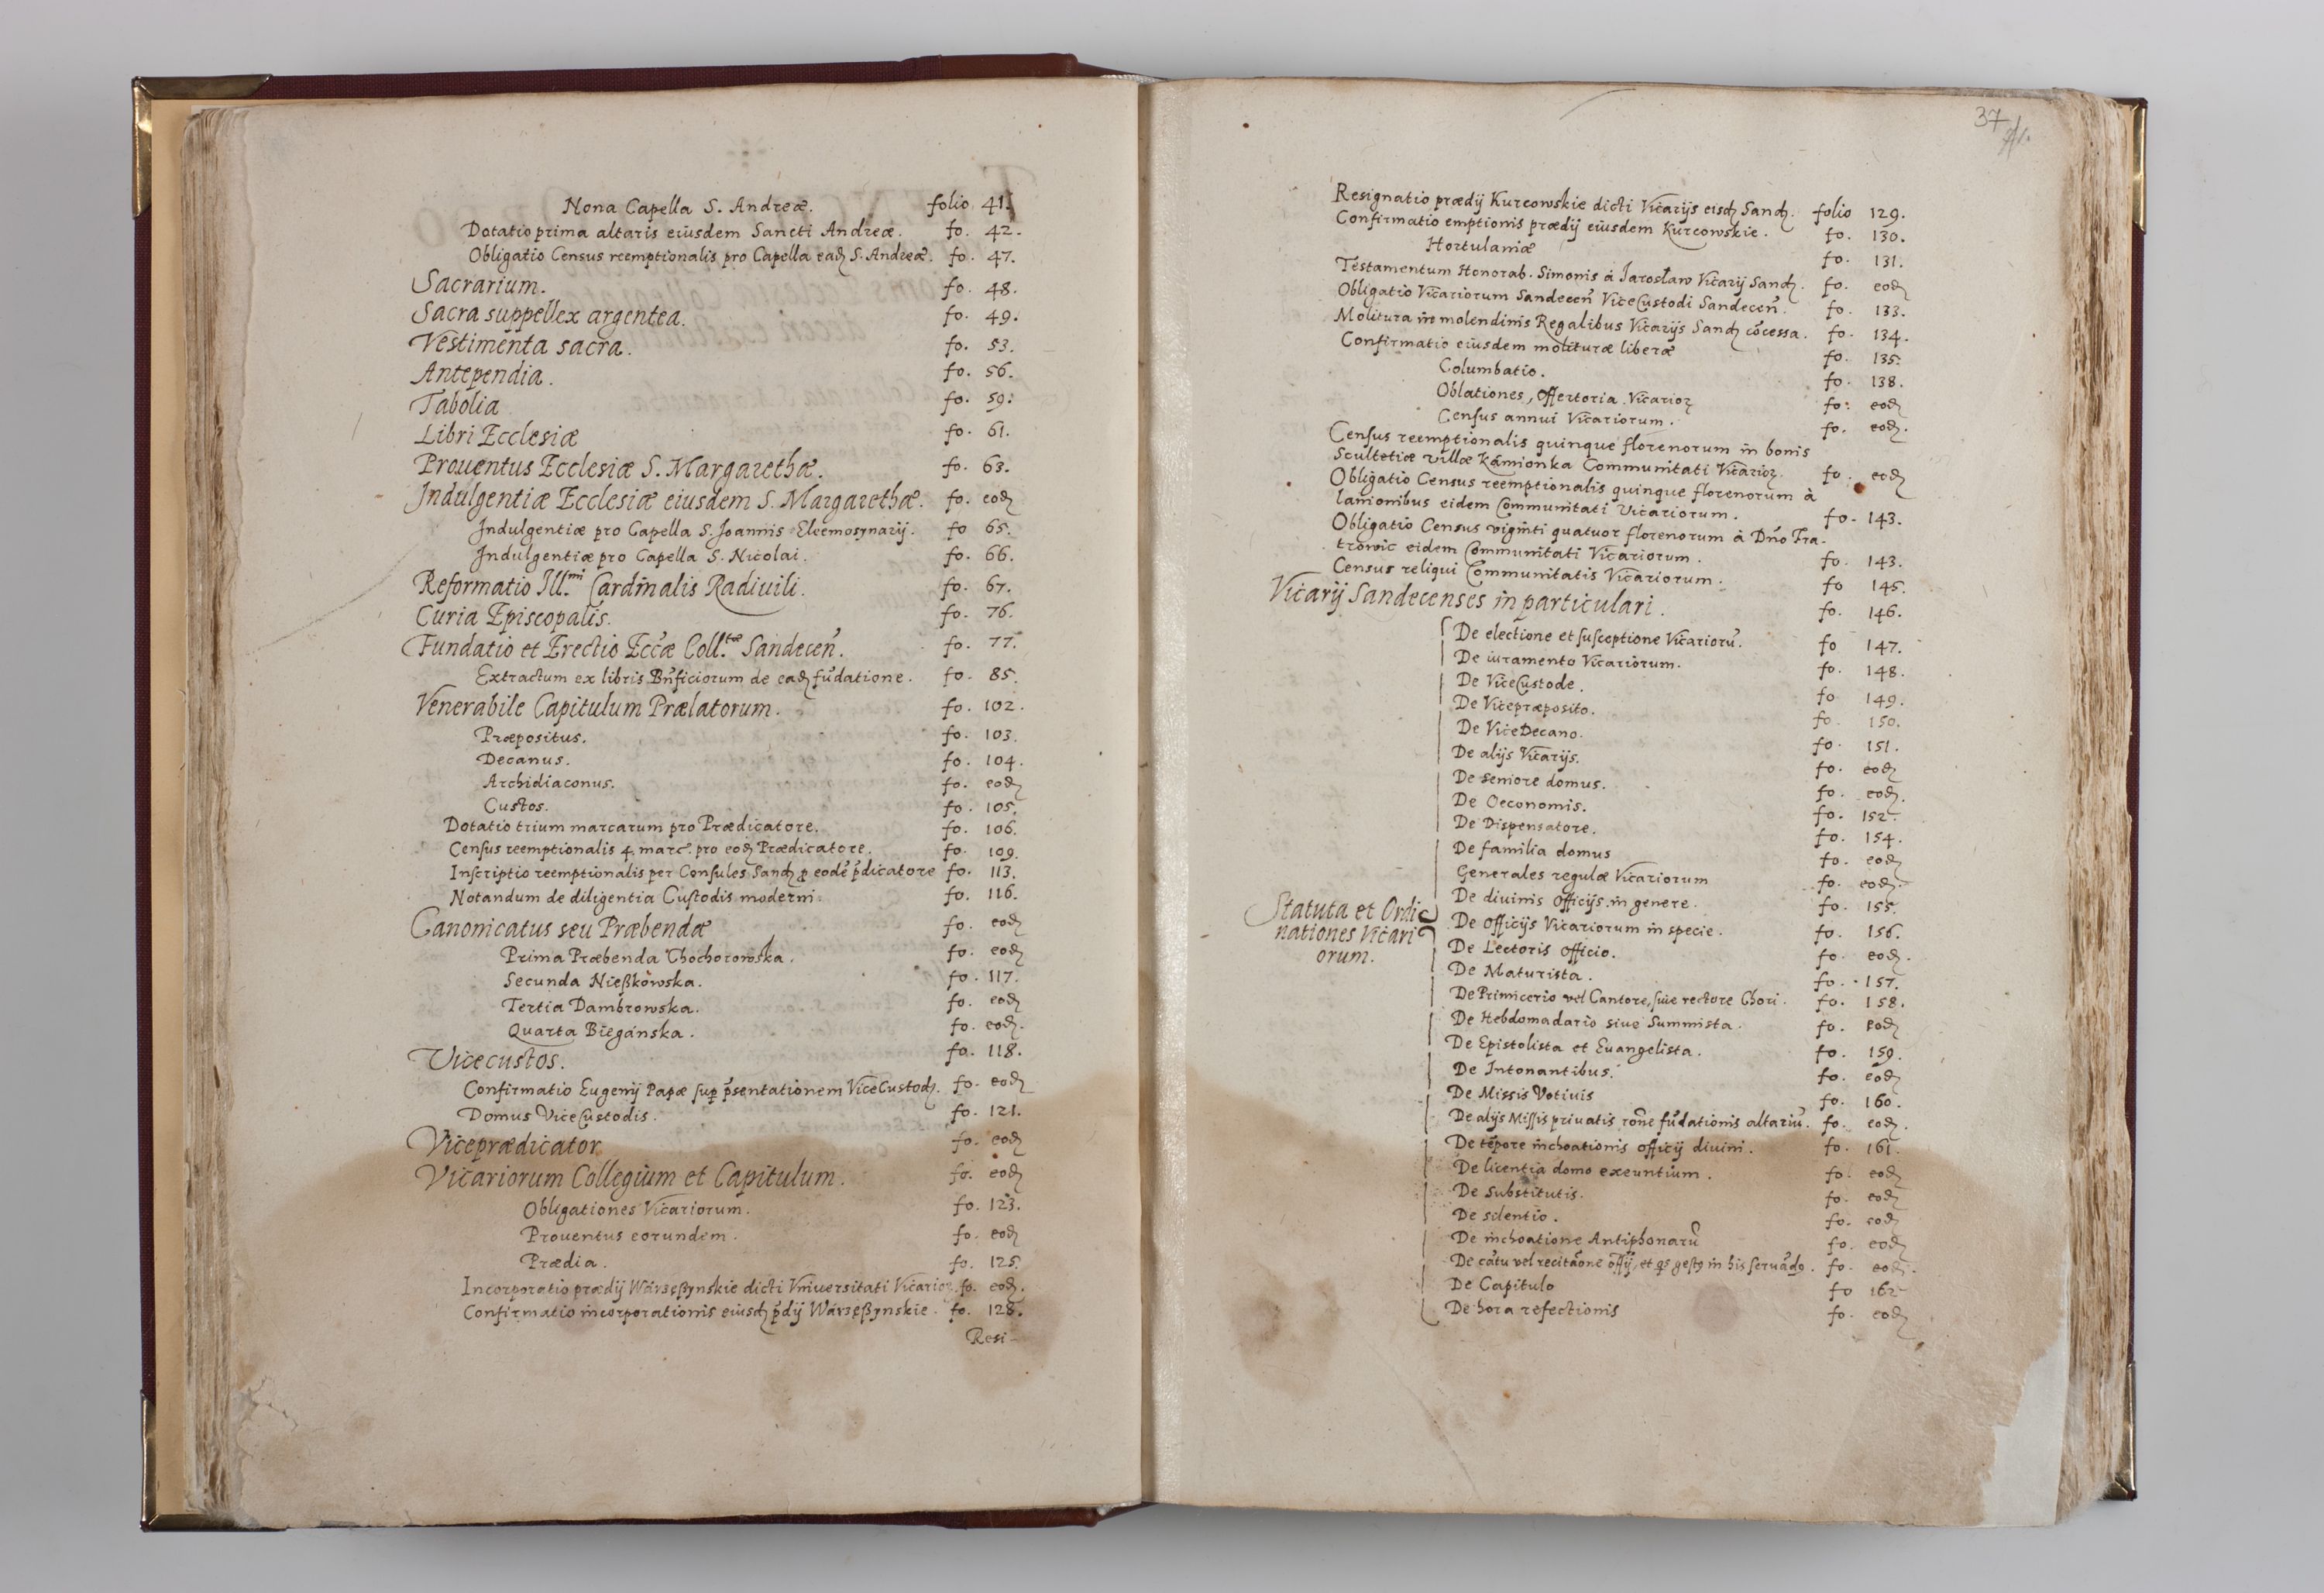 Nona Capella S. Andreæ. folio 41.
Dotatio prima altaris eiusdem Sancti Andreæ. fo. 42.
Obligatio Census reemptionalis pro Capella eadꝫ S. Andreæ. fo. 47.
Sacrarium. fo. 48.
Sacra suppellex argentea. fo. 49.
Vestimenta sacra. fo. 53.
Antependia. fo. 56.
Tabolia fo. 59.
Libri Ecclesiæ fo. 61.
Prouentus Ecclesiæ S. Margarethæ. fo. 63.
Indulgentiæ Ecclesiæ eiusdem S. Margarethæ. fo. eodꝫ
Indulgentiæ pro Capella S. Joannis Eleemosynarij. fo 65.
Indulgentiæ pro Capella S. Nicolai. fo. 66.
Reformatio Ill.mi Cardinalis Radiuili. fo. 67.
Curia Episcopalis. fo. 76.
Fundatio et Erectio Eccæ Coll.tæ Sandecen̄. fo. 77.
Extractum ex libris Bn̄ficiorum de eadꝫ fūdatione. fo. 85.
Venerabile Capitulum Prælatorum. fo. 102.
Præpositus. fo. 103.
Decanus. fo. 104.
Archidiaconus. fo. eodꝫ
Custos. fo. 105.
Dotatio trium marcarum pro Prædicatore. fo. 106.
Censſus reemptionalis 4. marc. pro eodꝫ Prædicatore. fo. 109.
Inſcriptio reemptionalis per Conſules Sandꝫ ꝓ eodē p̄dicatore fo. 113.
Notandum de diligentia Cuſtodis moderni. fo. 116.
Canonicatus seu Præbendæ fo. eodꝫ
Prima Præbenda Chochorowska. fo. eodꝫ
Secunda Nieſzkowska. fo. 117.
Tertia Dambrowska. fo. eodꝫ
Quarta Biegánska. fo. eodꝫ.
Vicecustos. fo. 118.
Confirmatio Eugenij Papæ ſuꝑ p̄sentationem ViceCustodꝫ. fo. eodꝫ
Domus ViceCustodis. fo. 121.
Viceprædicator fo. eodꝫ
Vicariorum Collegium et Capitulum. fo. eodꝫ
Obligationes Vicariorum. fo. 123.
Prouentus eorundem. fo. eodꝫ
Prædia. fo. 125.
Incorporatio prædij Wárzęſzynskie dicti Vniuersitati Vicarioꝝ. fo. eodꝫ.
Confirmatio incorporationis eiusdꝫ p̄dij Wárzęſzynskie. fo. 128.
Resi-
37
Resignatio prædij Kurcowskie dicti Vicarijs eisdꝫ Sandꝫ. folio 129.
Confirmatio emptionis prædij eiusdem Kurcowskie. fo. 130.
Hortulaniæ fo. 131.
Testamentum Honorab. Simonis à Jarosław Vicarij Sandꝫ. fo. eodꝫ
Obligatio Vicariorum Sandecen̄ ViceCustodi Sandecen̄. fo. 133.
Molitura in molendinis Regalibus Vicarijs Sandꝫ cōcessa. fo. 134.
Confirmatio eiusdem molituræ liberæ fo. 135.
Columbatio. fo. 138.
Oblationes, Offertoria Vicarioꝝ fo. eodꝫ
Cenſus annui Vicariorum. fo. eodꝫ.
Cenſus reemptionalis quinque florenorum in bonis
Scultetiæ villæ Kámionka Communitati Vicarioꝝ. fo. eodꝫ
Obligatio Census reemptionalis quinque florenorum à
lanionibus eidem Communitati Vicariorum. fo. 143.
Obligatio Census viginti quatuor florenorum à Dn̄o Fra-
trowic eidem Communitati Vicariorum. fo. 143.
Census reliqui Communitatis Vicariorum. fo 145.
Vicarij Sandecenses in particulari. fo. 146.
Statuta et Ordi
nationes Vicari
orum.
De electione et ſuſceptione Vicariorū. fo 147.
De iuramento Vicariorum. fo. 148.
De ViceCustode. fo 149.
De Vicepræposito. fo. 150.
De ViceDecano. fo. 151.
De alijs Vicarijs. fo. eodꝫ
De seniore domus. fo. eodꝫ.
De Oeconomis. fo. 152.
De Dispensatore. fo. 154.
De familia domus fo. eodꝫ
Generales regulæ Vicariorum fo. eodꝫ.
De diuinis Officijs in genere. fo. 155.
De Officijs Vicariorum in specie. fo. 156.
De Lectoris Officio. fo. eodꝫ.
De Maturista. fo. 157.
De Primicerio vel Cantore, ſiue rectore Chori. fo. 158.
De Hebdomadario siue Summista. fo. eodꝫ
De Epistolista et Euangelista. fo. 159.
De Intonantibus. fo. eodꝫ
De Missis Votiuis fo. 160.
De alijs Miſſis priuatis rōne fūdationis altariū. fo. eodꝫ.
De tēpore inchoationis officij diuini. fo. 161.
De licentia domo exeuntium. fo. eodꝫ
De substitutis. fo. eodꝫ
De silentio. fo. eodꝫ
De inchoatione Antiphonarū fo. eodꝫ
De cātu vel recitāone offij, et in his ſeruādo. fo. eodꝫ.
De Capitulo fo 162
De hora refectionis fo. eodꝫ